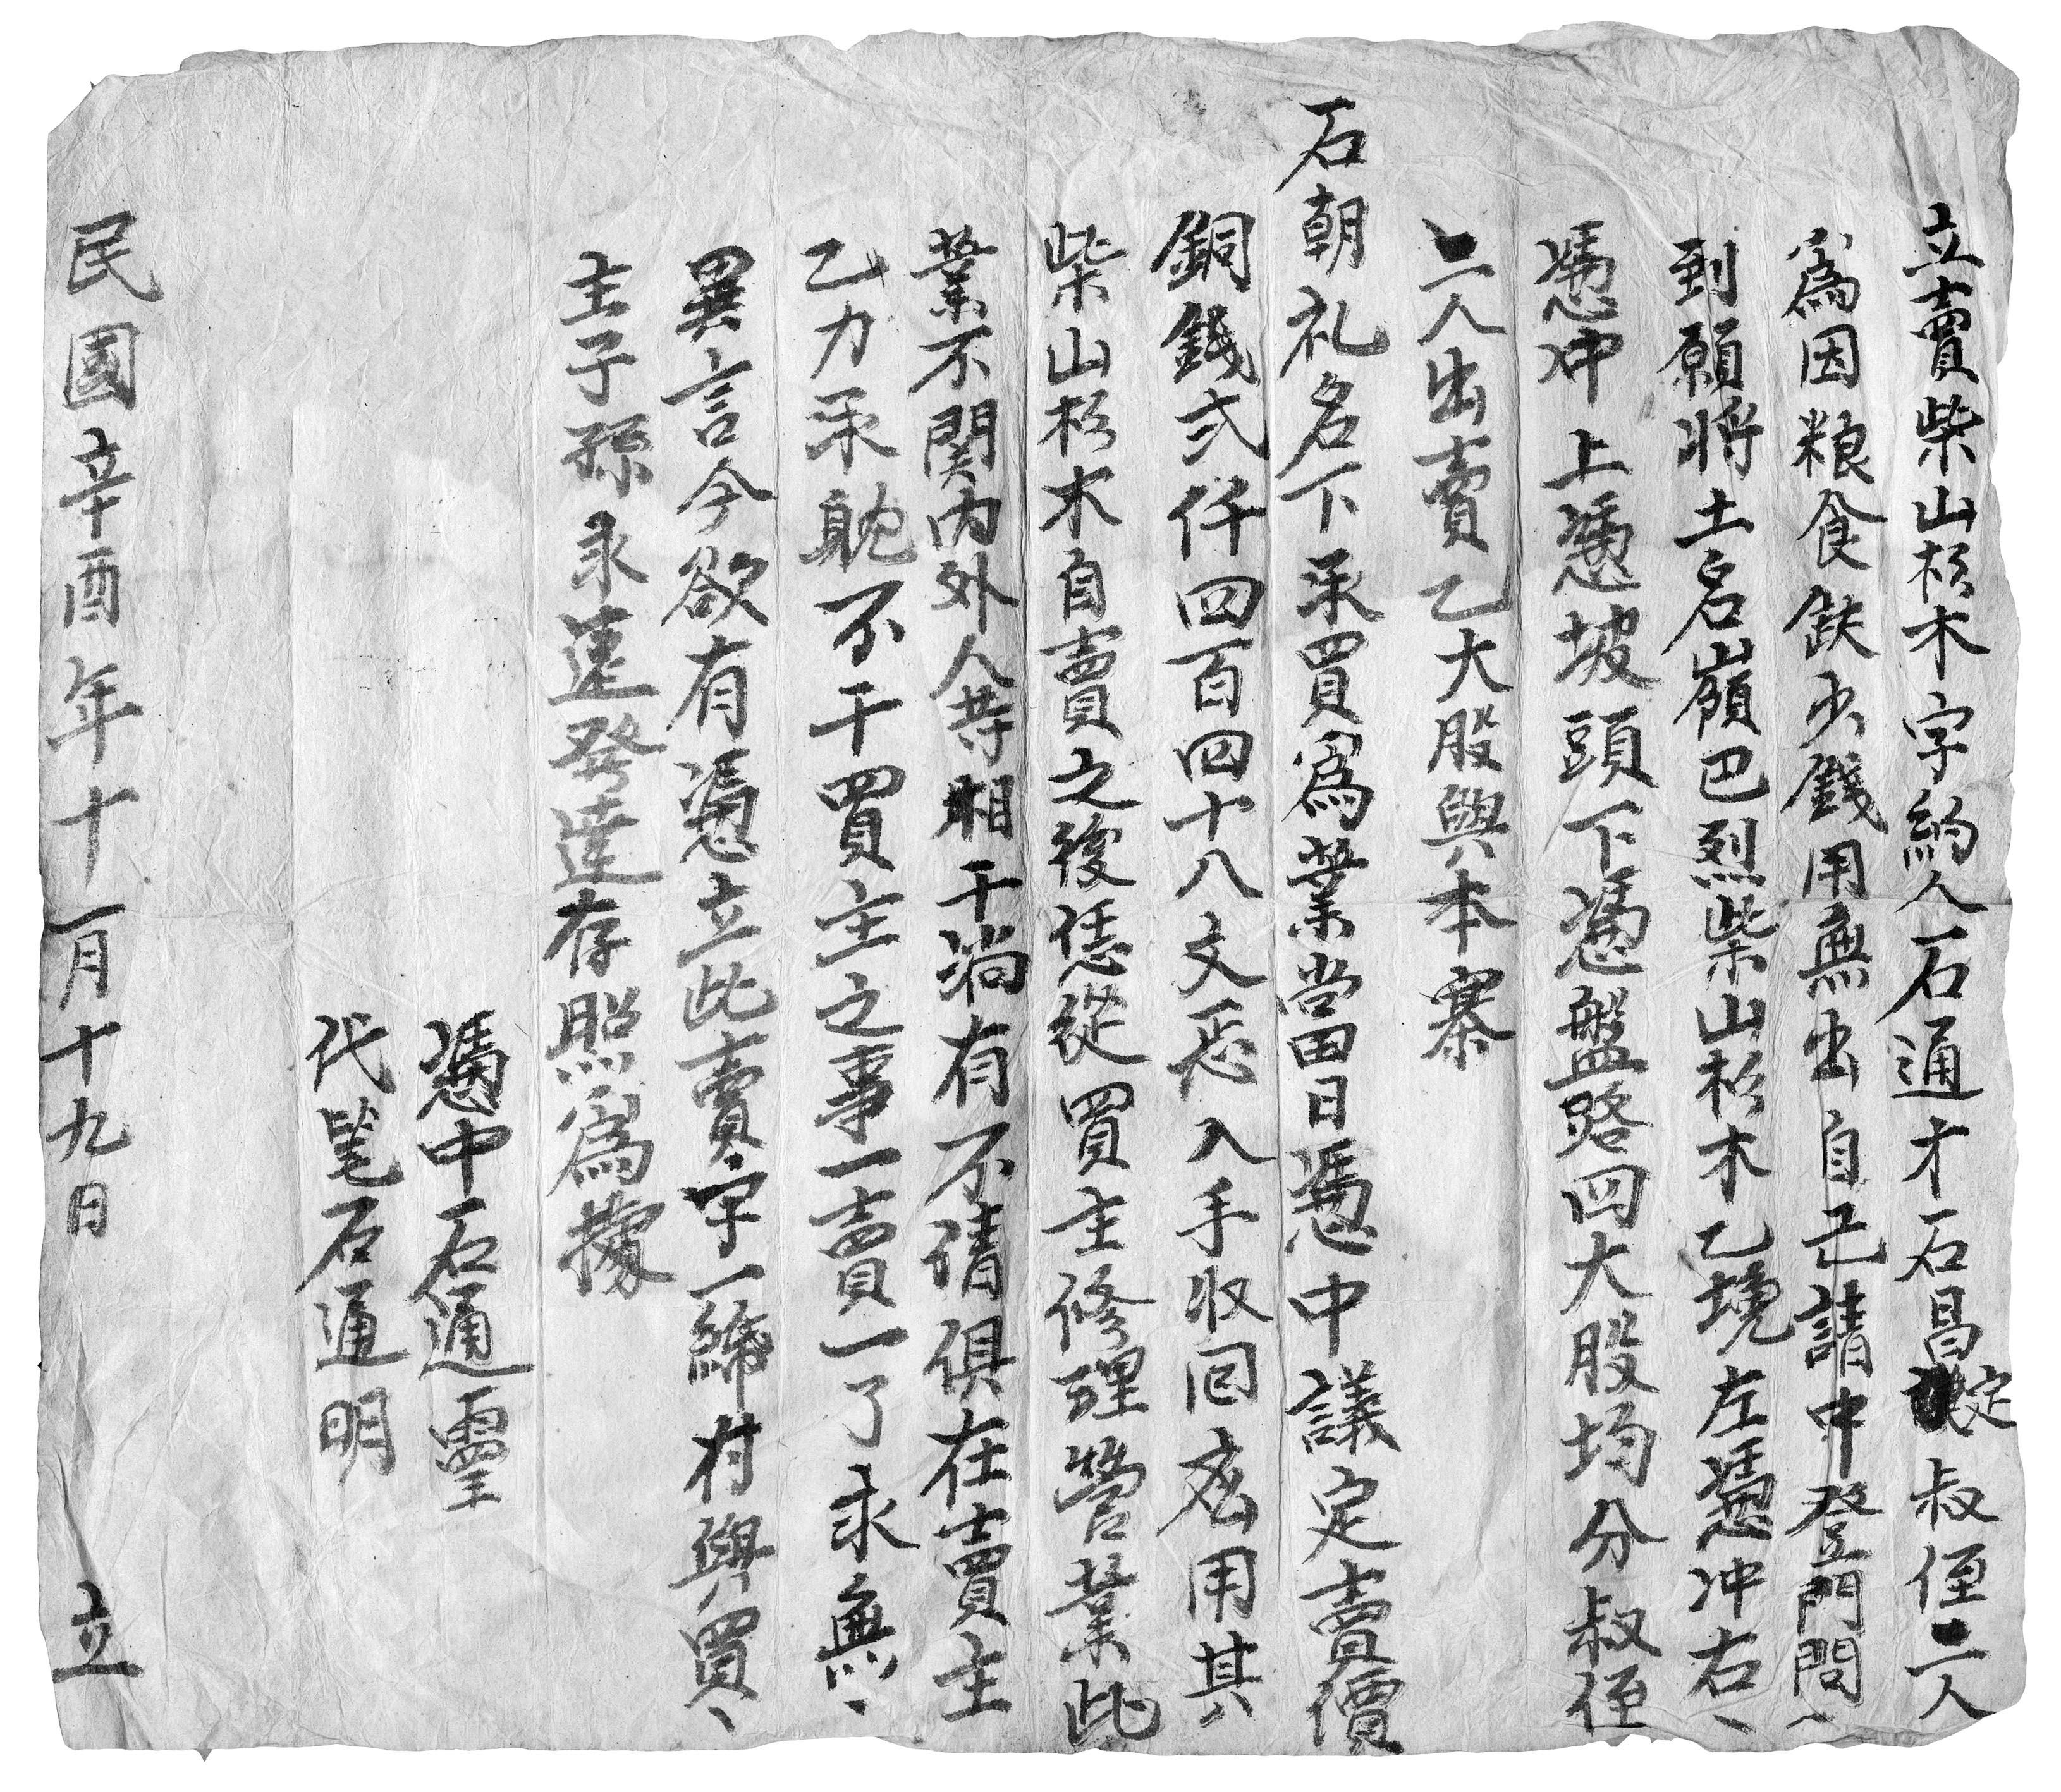 立賣柴山杉木字約人石通才石昌定叔侄二人
為因粮食缺少錢用無出自己請中登門問
到願將土名嶺巴烈柴山杉木乙塊左憑冲右
憑冲上憑坡頭下憑盤路四大股均分叔侄
二人出賣乙大股與本寨
石朝礼名下承買為業當日憑中議定賣價
銅錢弍仟四百四十八文悉入手收囘應用其
柴山杉木自賣之後恁從買主修理營業此
業不関內外人等相干淌有不清俱在賣主
乙力承躭不干買主之事一賣一了永無
異言今欲有憑立此賣字一締付與買
主子孫永遠發達存照為據
憑中石通靈
代筆石通明
民國辛酉年十一月十九日　立